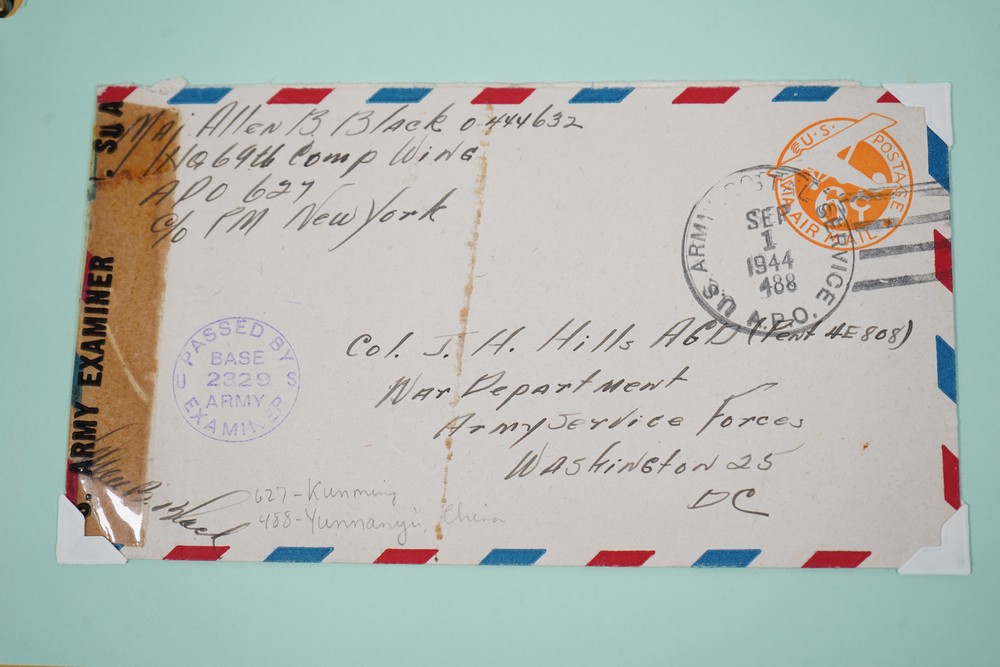 Maj Allen B. Black O-444632
HQ 69th Comp Wing
APO 627
c/o PM New York
U.S. POSTAGE
VIA AIR MAIL
U.S. ARMY POSTAL SERVICE
SEP
1
1944
488
A.P.O.
S. ARMY EXAMINER
PASSED BY
BASE
U 2329 S
ARMY
EXAMINER
Col. J. H. Hills AGD (Pent 4E808)
War Department
Army Service Forces
Washington 25
DC
B. Black
627-Kunming
488-Yunnanyi, China